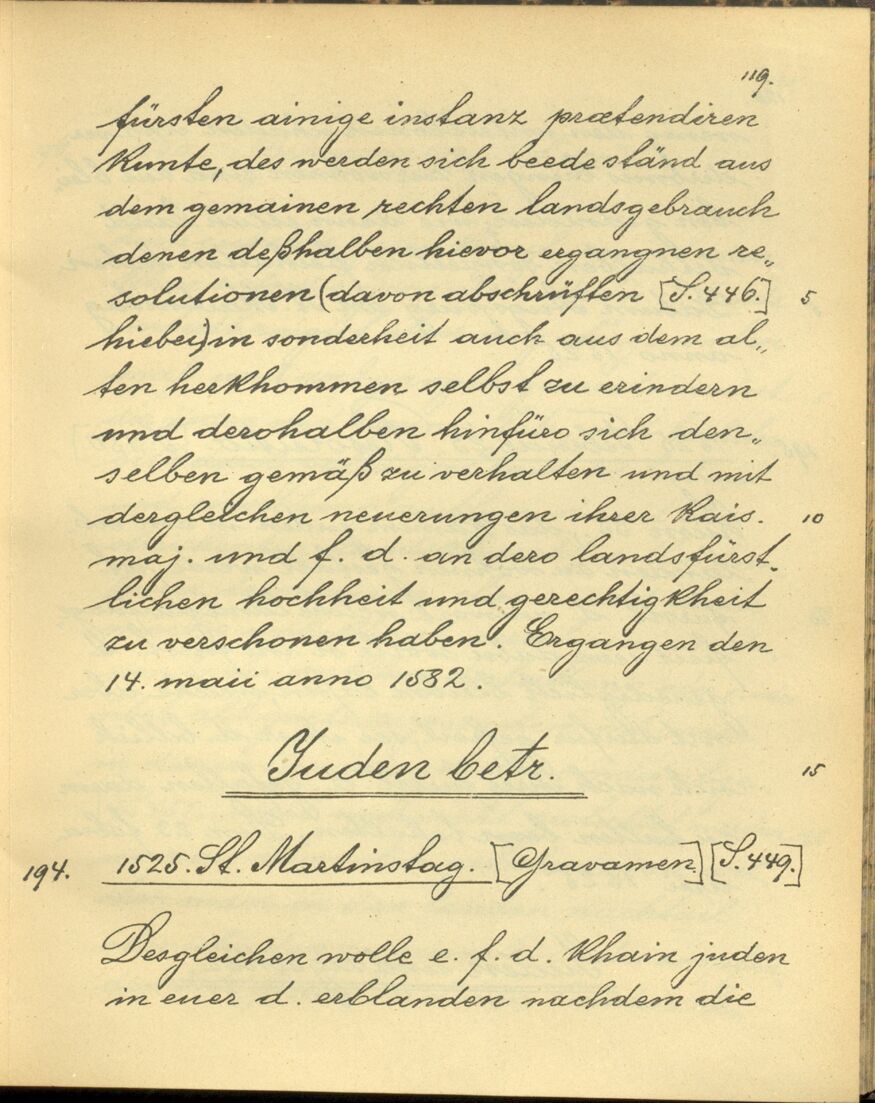 119.
fürsten ainige instanz prætendiren
kunte, des werden sich beede ständ aus
dem gemainen rechten landsgebrauch
denen deßhalben hievor ergangnen re„
solutionen (davon abschrüften [S. 446.] 5
hiebei) in sonderheit auch aus dem al„
ten herkhommen selbst zu erindern
und derohalben hinfüro sich den„
selben gemäß zu verhalten und mit
dergleichen neuerungen ihrer kais. 10
maj. und f. d. an dero landsfürst„
lichen hochheit und gerechtigkheit
zu verschonen haben. Ergangen den
14. maii anno 1582.
Juden betr. 15
194. 1525. St. Martinstag. [Gravamen.] [S. 449.]
Desgleichen wolle e. f. d. khain juden
in euer d. erblanden nachdem die